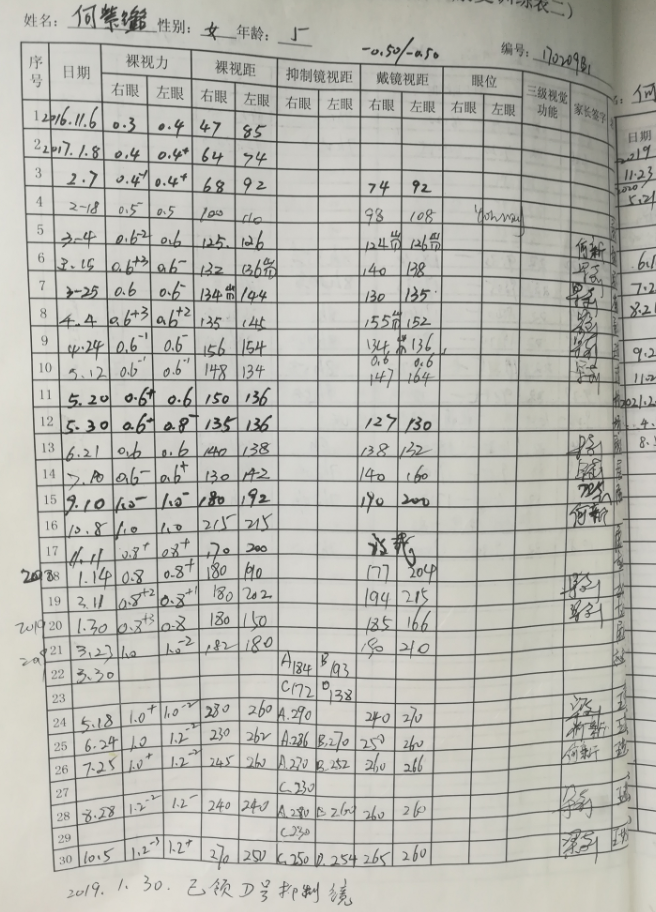 姓名: 何 性别: 女 年龄: 5
-0.50/-0.50 编号: 170209B1
序号 日期 裸视力 裸视距 抑制镜视距 戴镜视距 眼位 三级视觉功能 家长签字
右眼 左眼 右眼 左眼 右眼 左眼 右眼 左眼 右眼 左眼
1 2016.11.6 0.3 0.4 47 85
2 2017.1.8 0.4 0.4+ 64 74
3 2.7 0.4-1 0.4+ 68 92 74 92
4 2-18 0.5 0.5 100 110 98 108
5 3-4 0.6-2 0.6 125. 126 124 126
6 3.15 0.6+3 0.6- 132 136 140 138
7 3-25 0.6 0.6 134 144 130 135
8 4.4 0.6+3 0.6+2 135 145 155 152
9 4.24 0.6-1 0.6- 156 154 134 136
0.6 0.6
10 5.12 0.6-1 0.6-1 148 134 147 164
11 5.20 0.6+ 0.6 150 136
12 5.30 0.6+ 0.8- 135 136 127 130
13 6.21 0.6 0.6 140 138 138 132
14 7.10 0.6- 0.6+ 130 142 140 160
15 9.10 1.0- 1.0- 180 192 190 200
16 10.8 1.0 1.0 215 215
17 11.11 0.8+ 0.8+ 170 200 没戴
2018 18 1.14 0.8 0.8+ 180 190 177 204
19 3.11 0.8+2 0.8+1 180 202 194 215
2019 20 1.30 0.8+3 0.8 180 150 185 166
2019 21 3.23 1.0 1.0-2 182 180 190 210
22 3.30 A184 B193
23 C172 D138
24 5.18 1.0+ 1.0-2 280 260 A.290 240 270
25 6.24 1.0 1.2-2 230 262 A.286 B.270 250 260
26 7.25 1.0+ 1.2-2 245 260 A.270 B.252 260 266
27 C.230
28 8.28 1.2-2 1.2- 240 240 A.280 B.260 260 260
29 C.230
30 10.5 1.2-3 1.2+ 270 250 C.250 D.254 265 260
2019.1.30. 已领D号抑制镜
日期
2019
11.23
2020
5.21
6.1
7.2
8.21
9.2
11.2
2021.2.
4.
8.